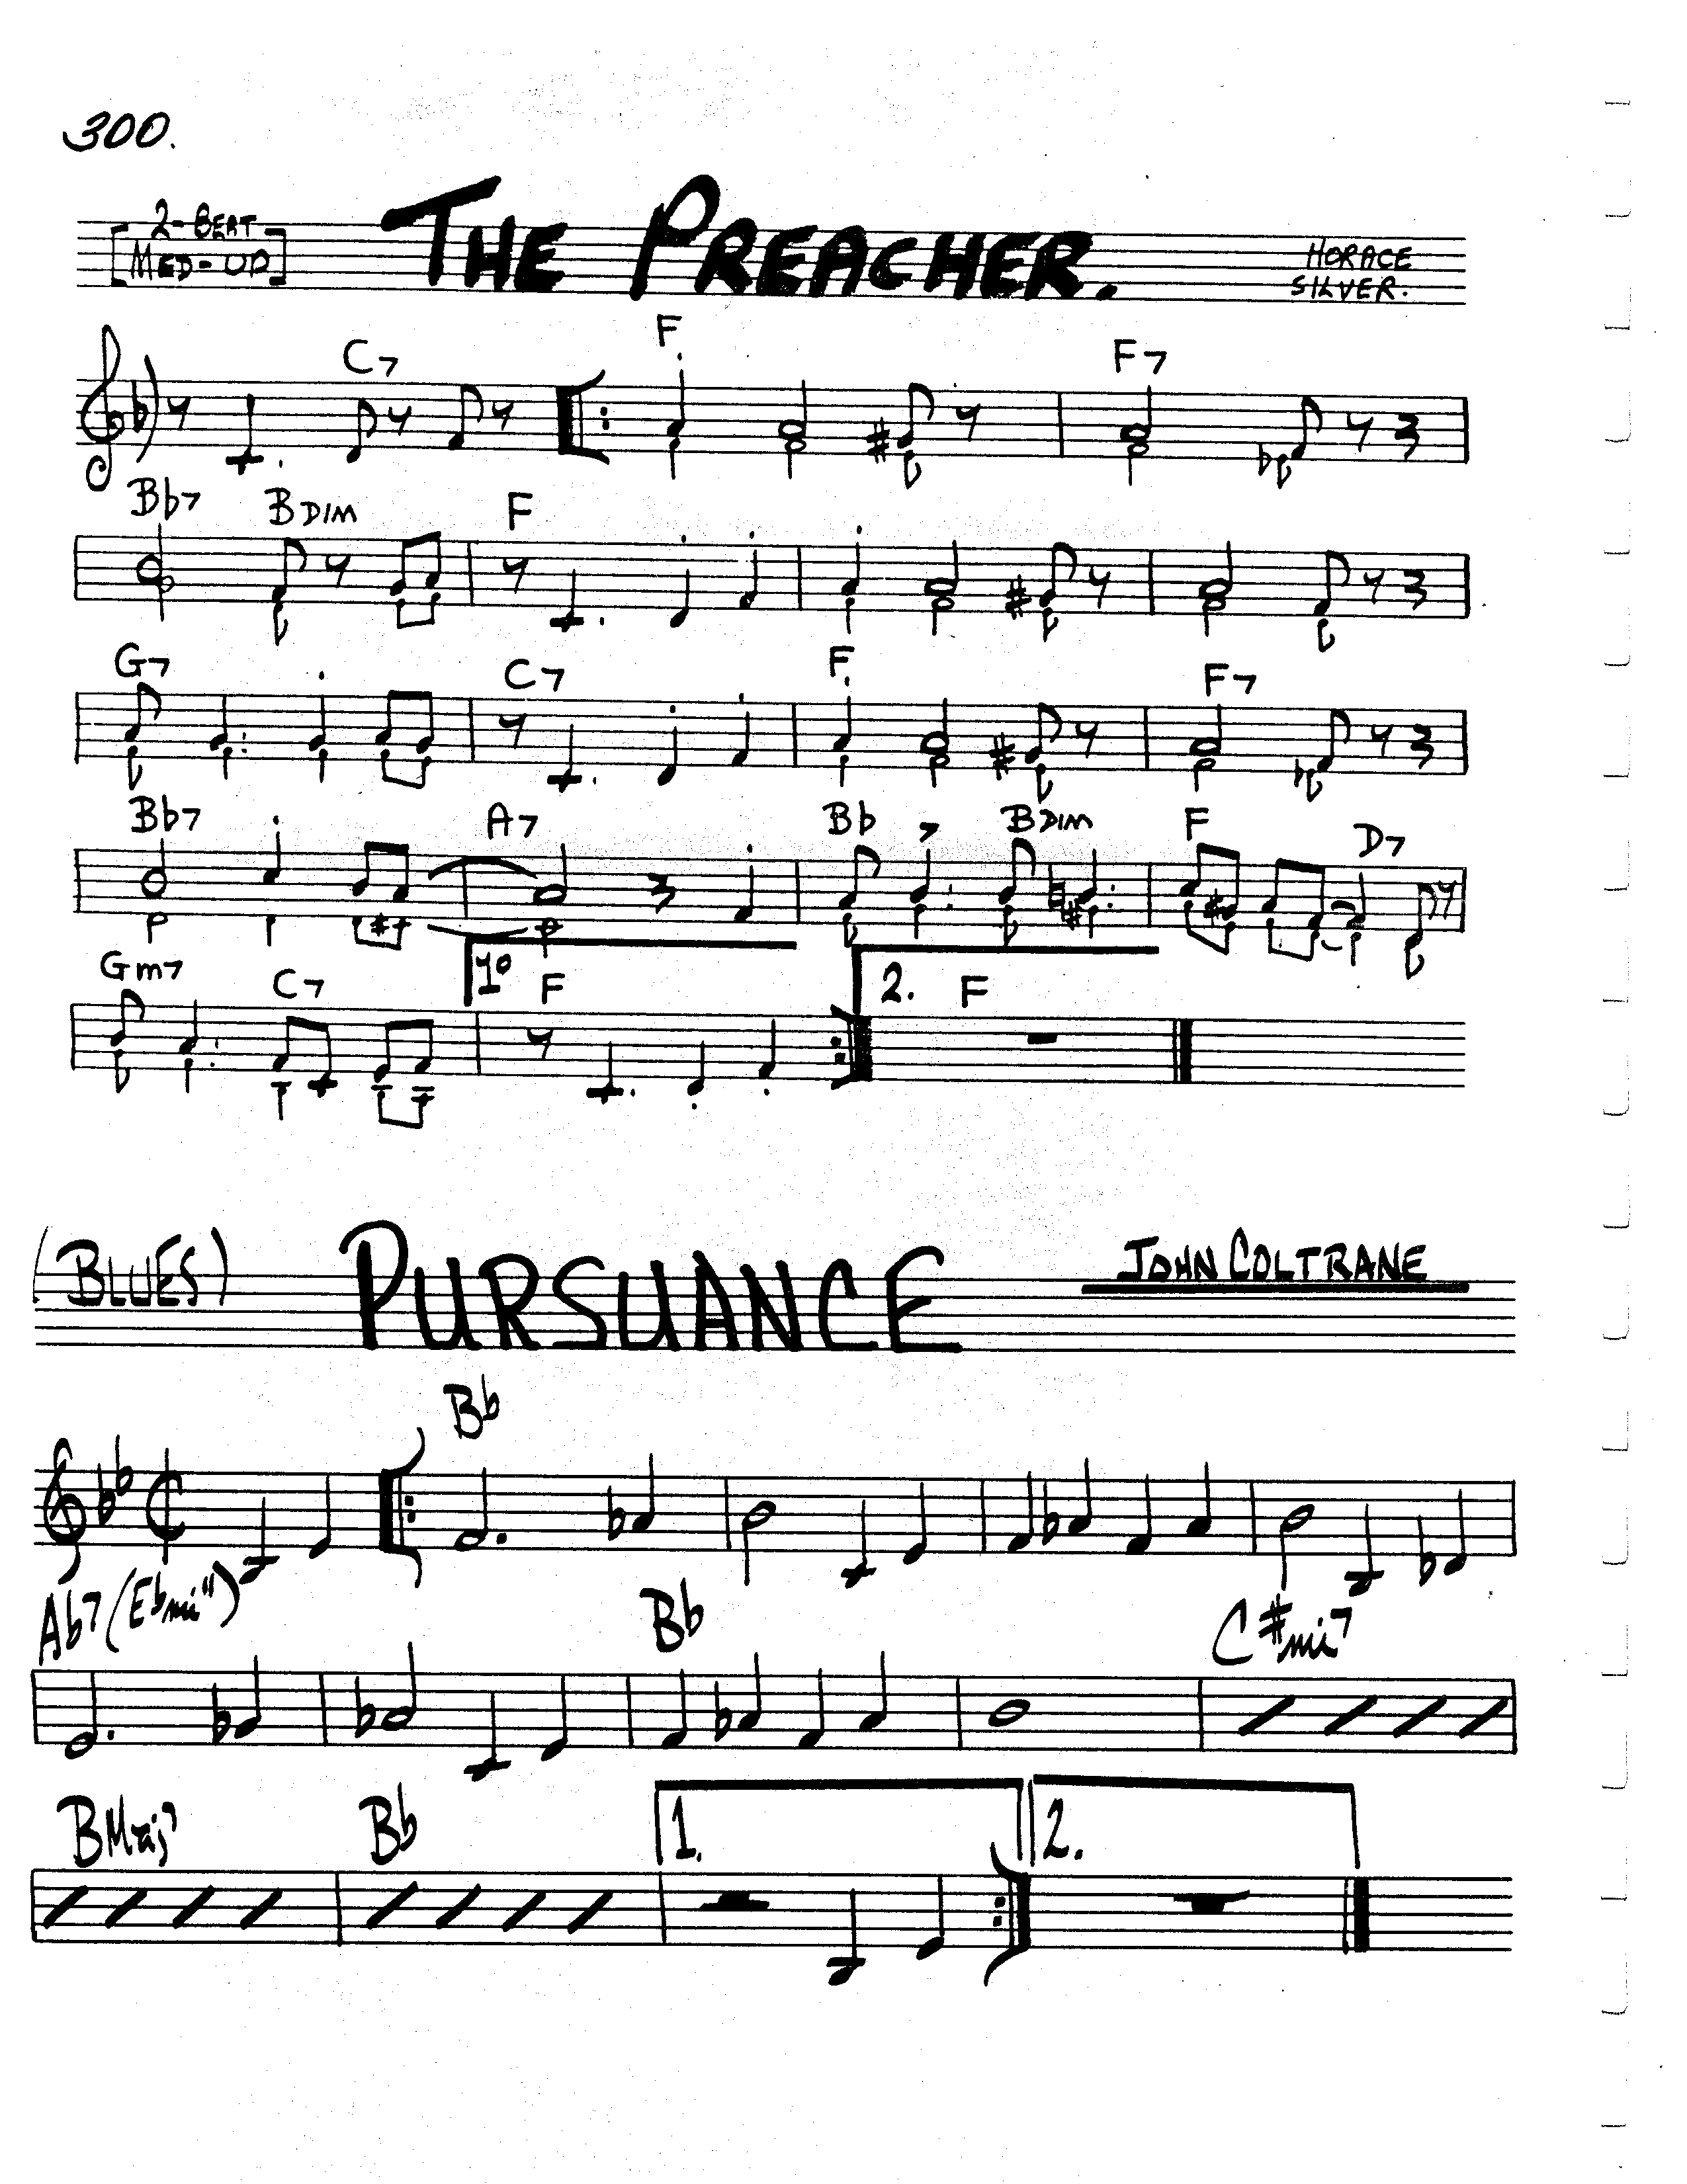 300.
2-BEAT
[MED-UP]
THE PREACHER.
HORACE
SILVER.
C7 F F7
Bb7 BDIM F
G7 C7 F F7
Bb7 A7 Bb BDIM F D7
Gm7 C7 1o F 2. F
(BLUES) PURSUANCE JOHN COLTRANE
Bb
Ab7 (Ebmi11) Bb C#mi7
BMaj7 Bb 1. 2.